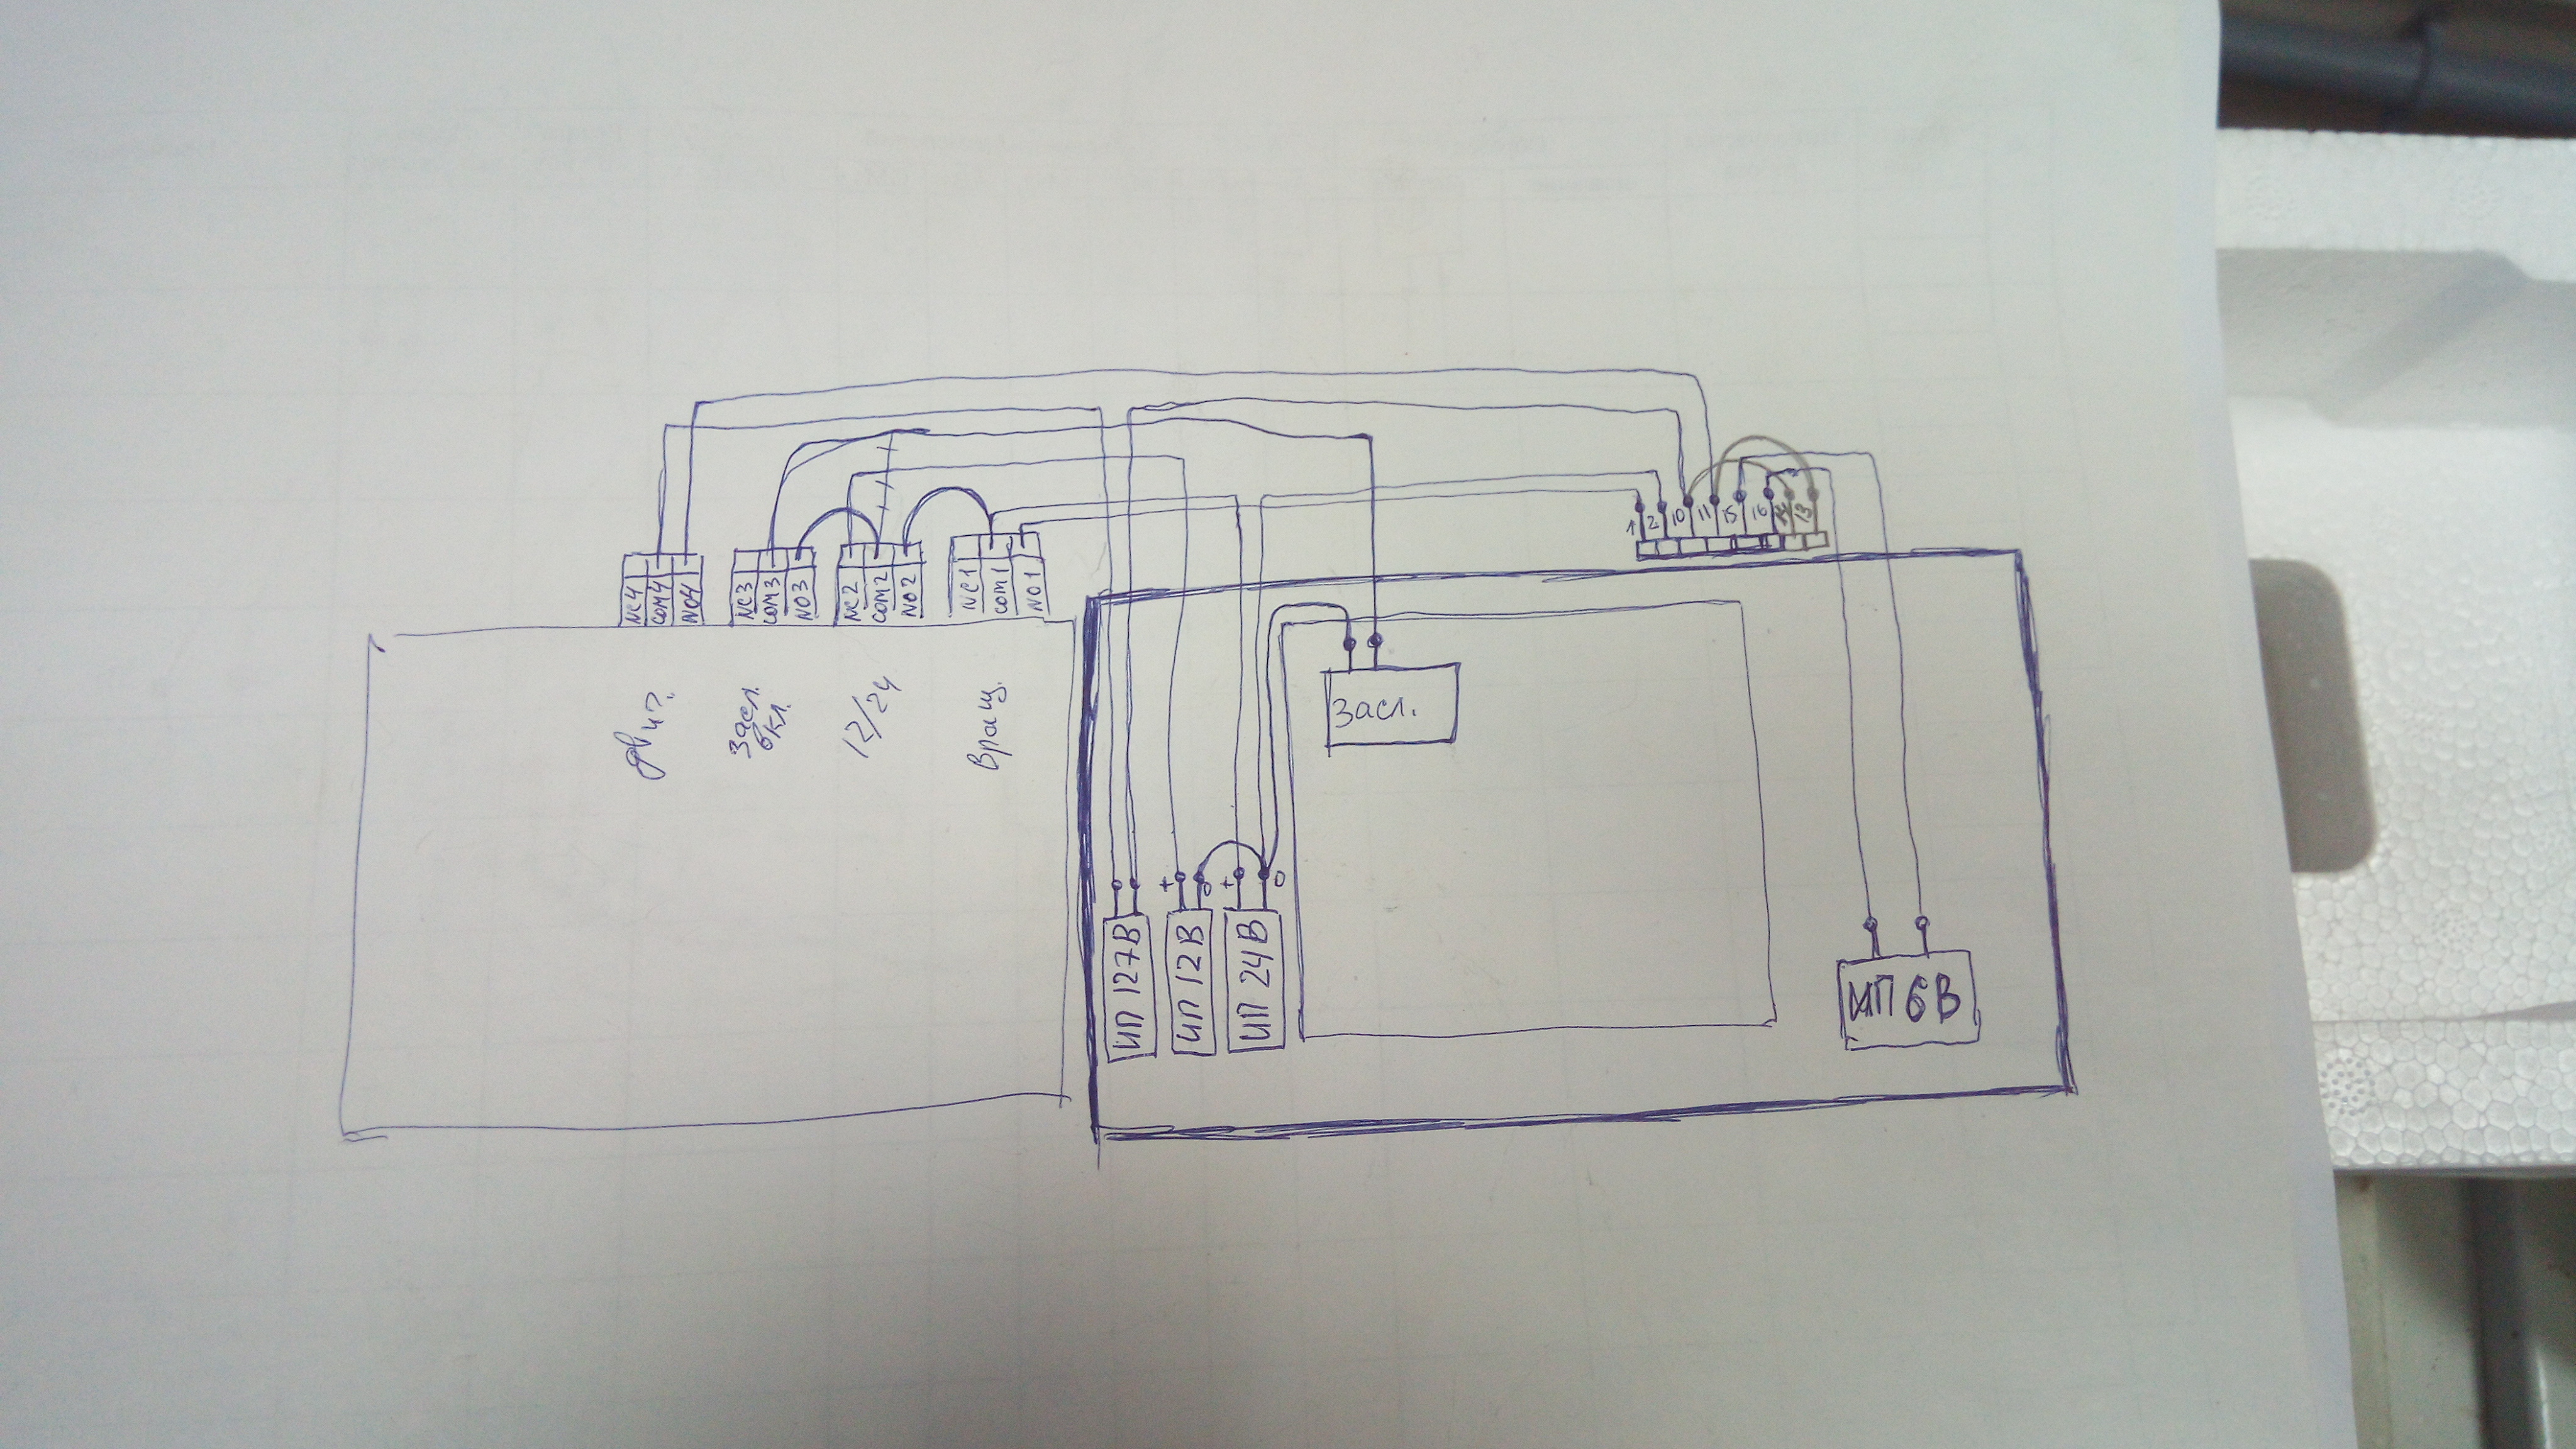 1 2 10 11 15 16 14 13
NC4 COM4 NO4
NC3 COM3 NO3
NC2 COM2 NO2
NC1 COM1 NO1
двиг.
Засл.
вкл.
12/24
Вращ.
Засл.
+ 0 + 0
ИП 127В
ИП 12В
ИП 24В
ИП 6В